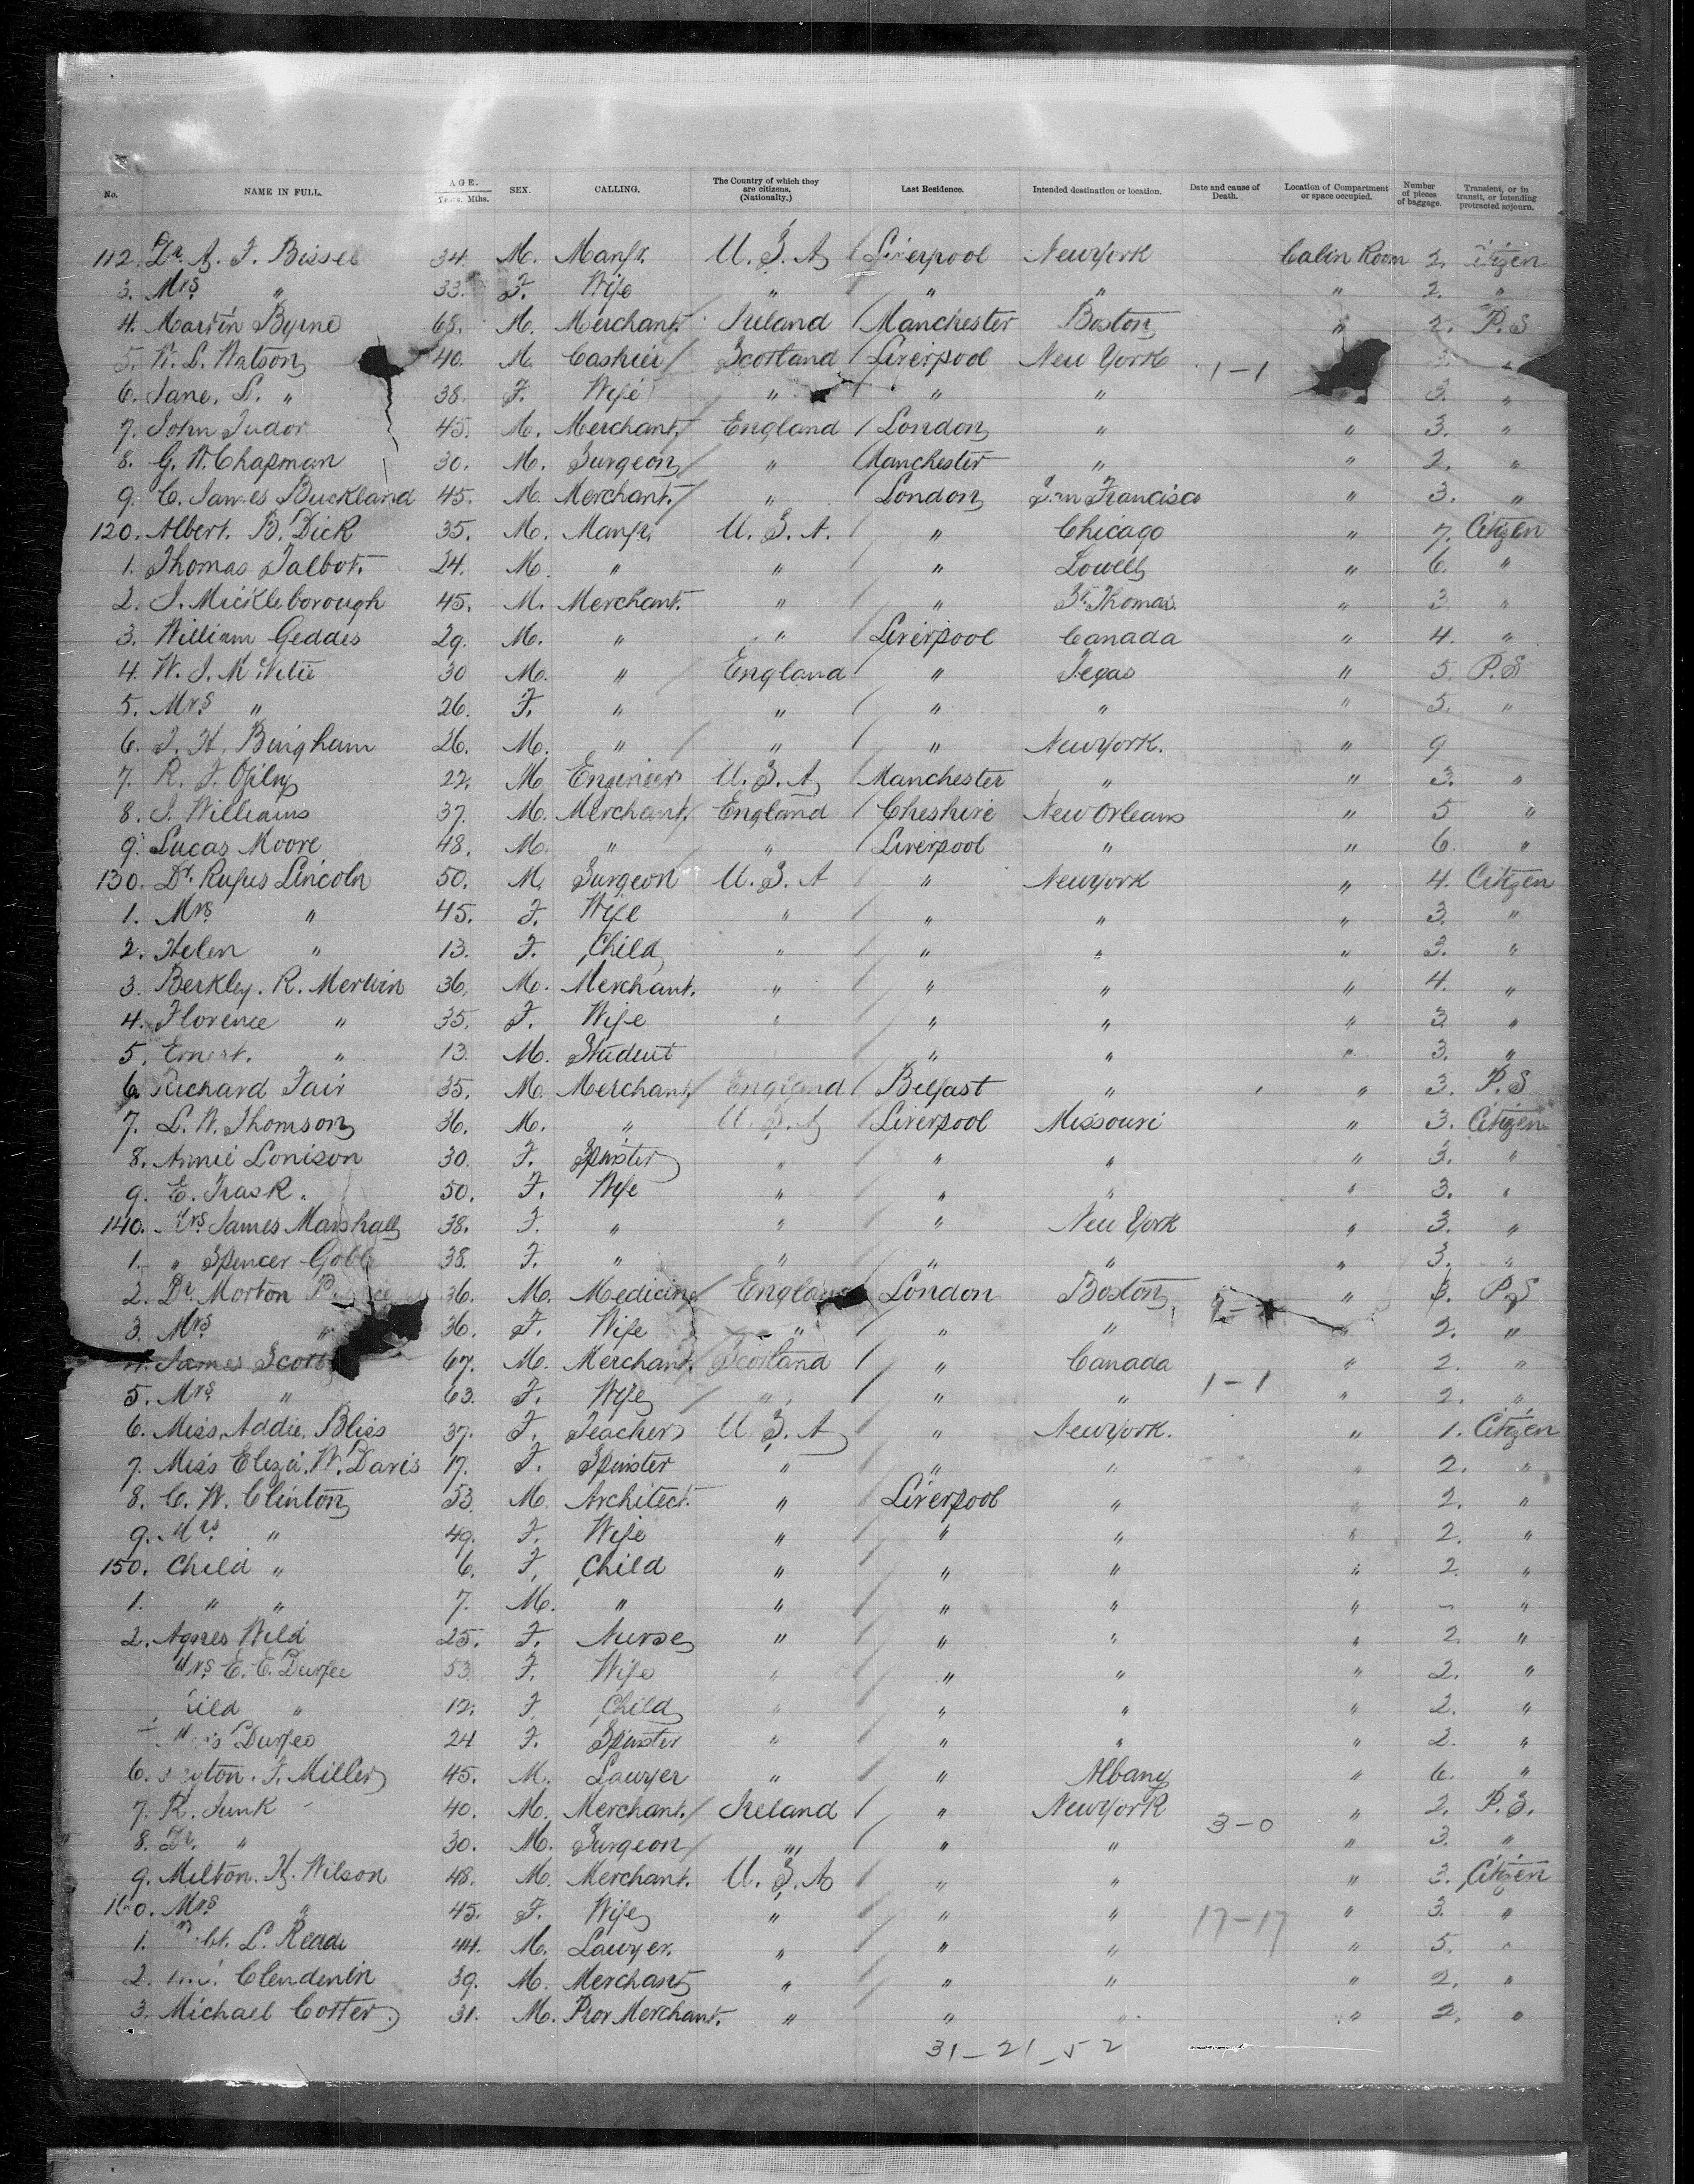 No. NAME IN FULL. AGE. Years. Mths. SEX. CALLING. The Country of which they are citizens. (Nationalty.) Last Residence. Intended destination or location. Date and cause of Death. Location of Compartment or space occupied. Number of pieces of baggage. Transient, or in transit, or intending protracted sojourn.
112. Dr. A. F. Bissel 34. M. Manfr. U.S.A Liverpool New York Cabin Room 2. Citizen
3. Mrs " 33. F. Wife " " " " 2. "
4. Martin Byrne 68. M. Merchant. Ireland Manchester Boston " 2. P.S
5. W. L. Watson 40. M. Cashier Scotland Liverpool New York 1-1
6. Jane. L. " 38. F. Wife " " " 3. "
7. John Tudor 45. M. Merchant. England London " " 3. "
8. G. W. Chapman 30. M. Surgeon " Manchester " " 2. "
9. C. James Buckland 45. M. Merchant. " London San Francisco " 3. "
120. Albert. B. Dick 35. M. Manfr. U.S.A. " Chicago " 7. Citizen
1. Thomas Talbot. 24. M. " " " Lowell " 6. "
2. J. Mickleborough 45. M. Merchant. " " St. Thomas. " 3. "
3. William Geddes 29. M. " " Liverpool Canada " 4. "
4. W. J. 30 M. " England " Texas " 5. P.S
5. Mrs " 26. F. " " " " " 5. "
6. J. H. Bingham 26. M. " " " New York. " 9
7. R. F. Ogilvy 22. M Engineer U.S.A Manchester " " 3. "
8. J. Williams 37. M. Merchant. England Cheshire New Orleans " 5 "
9. Lucas Moore 48. M. " " Liverpool " " 6. "
130. Dr. Rufus Lincoln 50. M. Surgeon U.S.A " New York " 4. Citizen
1. Mrs " 45. F. Wife " " " " 3. "
2. Helen " 13. F. Child " " " " 3. "
3. Berkley. R. Merwin 36. M. Merchant. " " " " 4. "
4. Florence " 35. F. Wife " " " " 3. "
5. Ernest. " 13. M. Student " " " 3. "
6. Richard Fair 35. M. Merchant England Belfast " " 3. P.S
7. L. W. Thomson 36. M. " U.S.A Liverpool Missouri " 3. Citizen
8. Annie Lonison 30. F. Spinster " " " " 3. "
9. E. Trask. 50. F. Wife " " " " 3. "
140. Mrs James Marshall 38. F. " " " New York " 3. "
1. " Spencer 38. F. " " " " " 3. "
2. Dr. Morton 36. M. Medicine England London Boston " 3. P.S
3. Mrs " 36. F. Wife " " " " 2. "
4. James Scott 67. M. Merchant. Scotland " Canada " 2. "
5. Mrs " 63. F. Wife " " " 1-1 " 2. "
6. Miss. Addie. Bliss 37. F. Teacher U.S.A " New York. " 1. Citizen
7. Miss Eliza. W. Davis 17. F. Spinster " " " " 2. "
8. C. W. Clinton 53. M. Architect. " Liverpool " " 2. "
9. Mrs " 49. F. Wife " " " " 2. "
150. Child " 6. F. Child " " " " 2. "
1. " " 7. M. " " " " " - "
2. Agnes Wild 25. F. Nurse " " " " 2. "
Mrs E. E. Durfee 53. F. Wife " " " " 2. "
Child " 12. F. Child " " " " 2. "
Miss Durfee 24 F. Spinster " " " " 2. "
6. F. Miller 45. M. Lawyer " " Albany " 6. "
7. R. Junk 40. M. Merchant. Ireland " New York " 2. P.S.
8. Dr. " 30. M. Surgeon " " " 3-0 " 3. "
9. Milton. H. Wilson 48. M. Merchant. U.S.A " " " 3. Citizen
160. Mrs " 45. F. Wife " " " 17-17 " 3. "
1. L. Reade 44. M. Lawyer. " " " " 5. "
2. Clendenin 39. M. Merchant " " " " 2. "
3. Michael Coster 31. M. Pror Merchant. " " " " 2. "
31-21-52